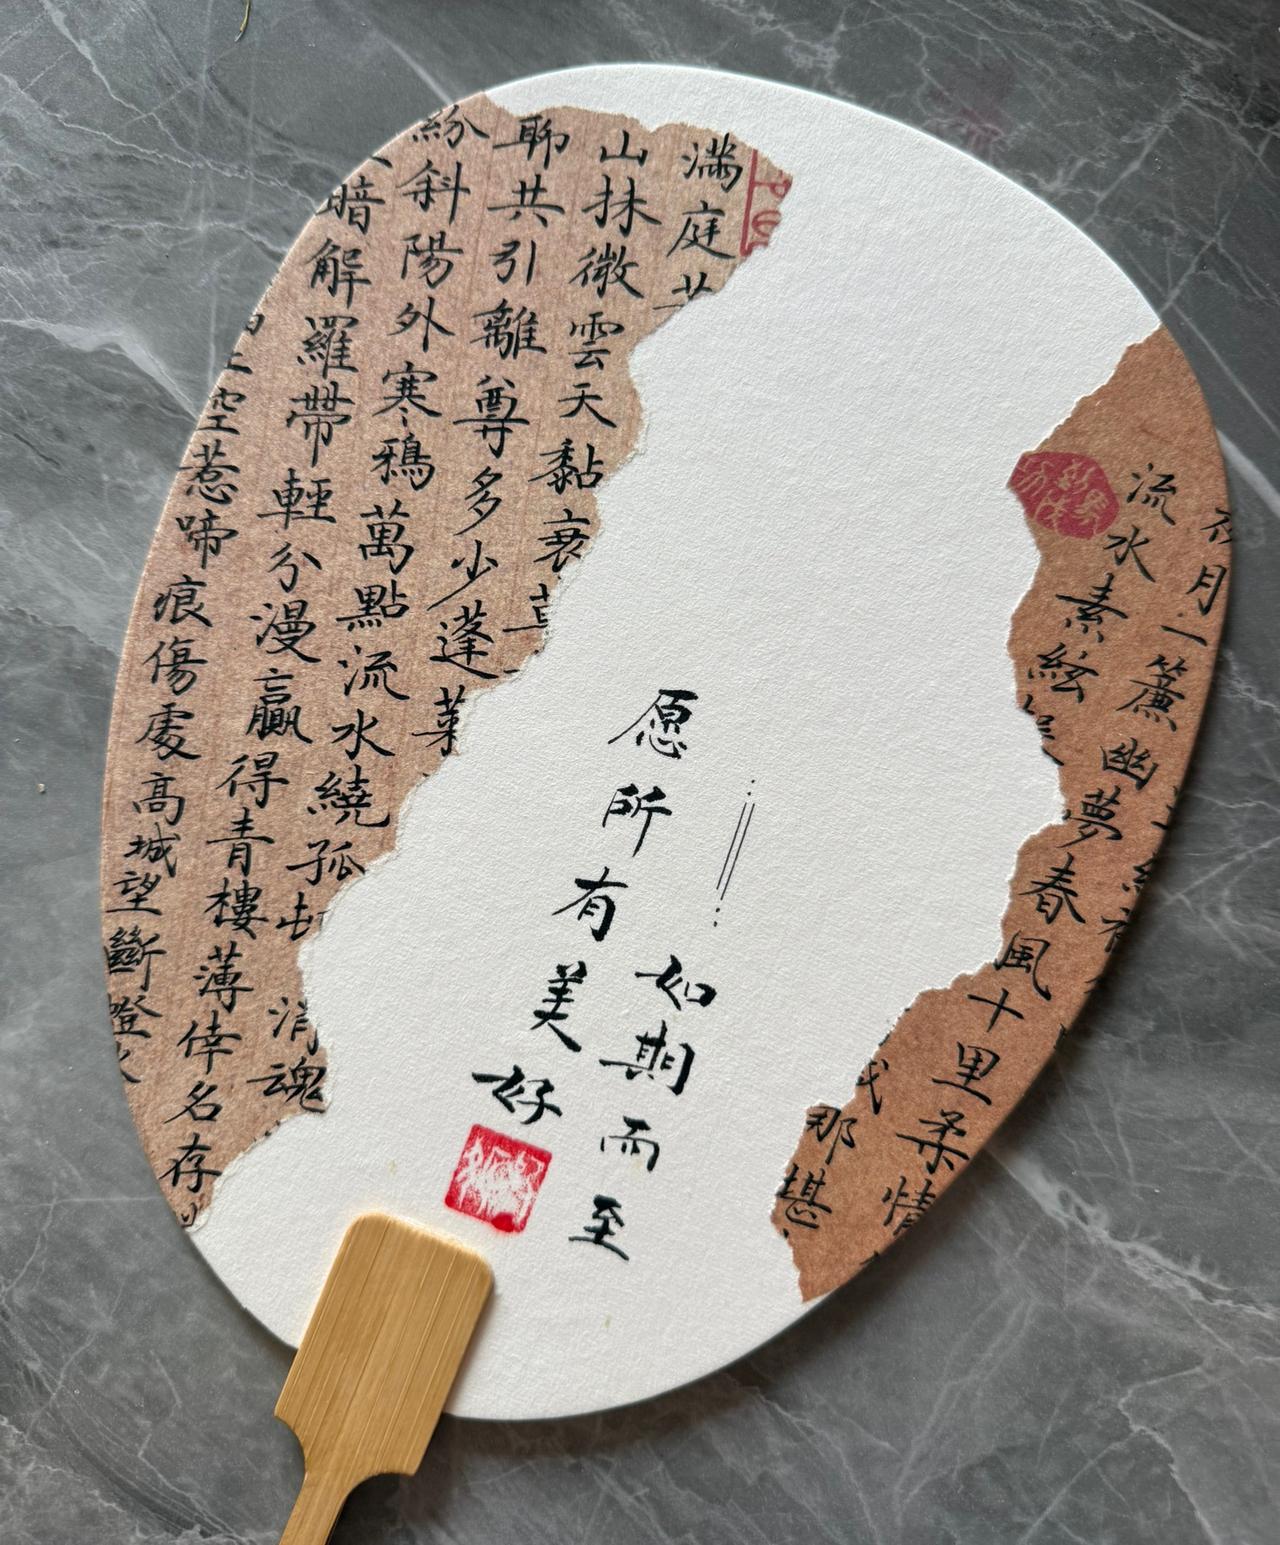 夜月一簾幽夢春風十里柔情
流水素絃
那堪
愿所有美好
如期而至
滿庭
山抹微雲天黏衰
聊共引離尊多少蓬萊
紛斜陽外寒鴉萬點流水繞孤
消魂
暗解羅帶輕分漫贏得青樓薄倖名存
空惹啼痕傷處高城望斷燈